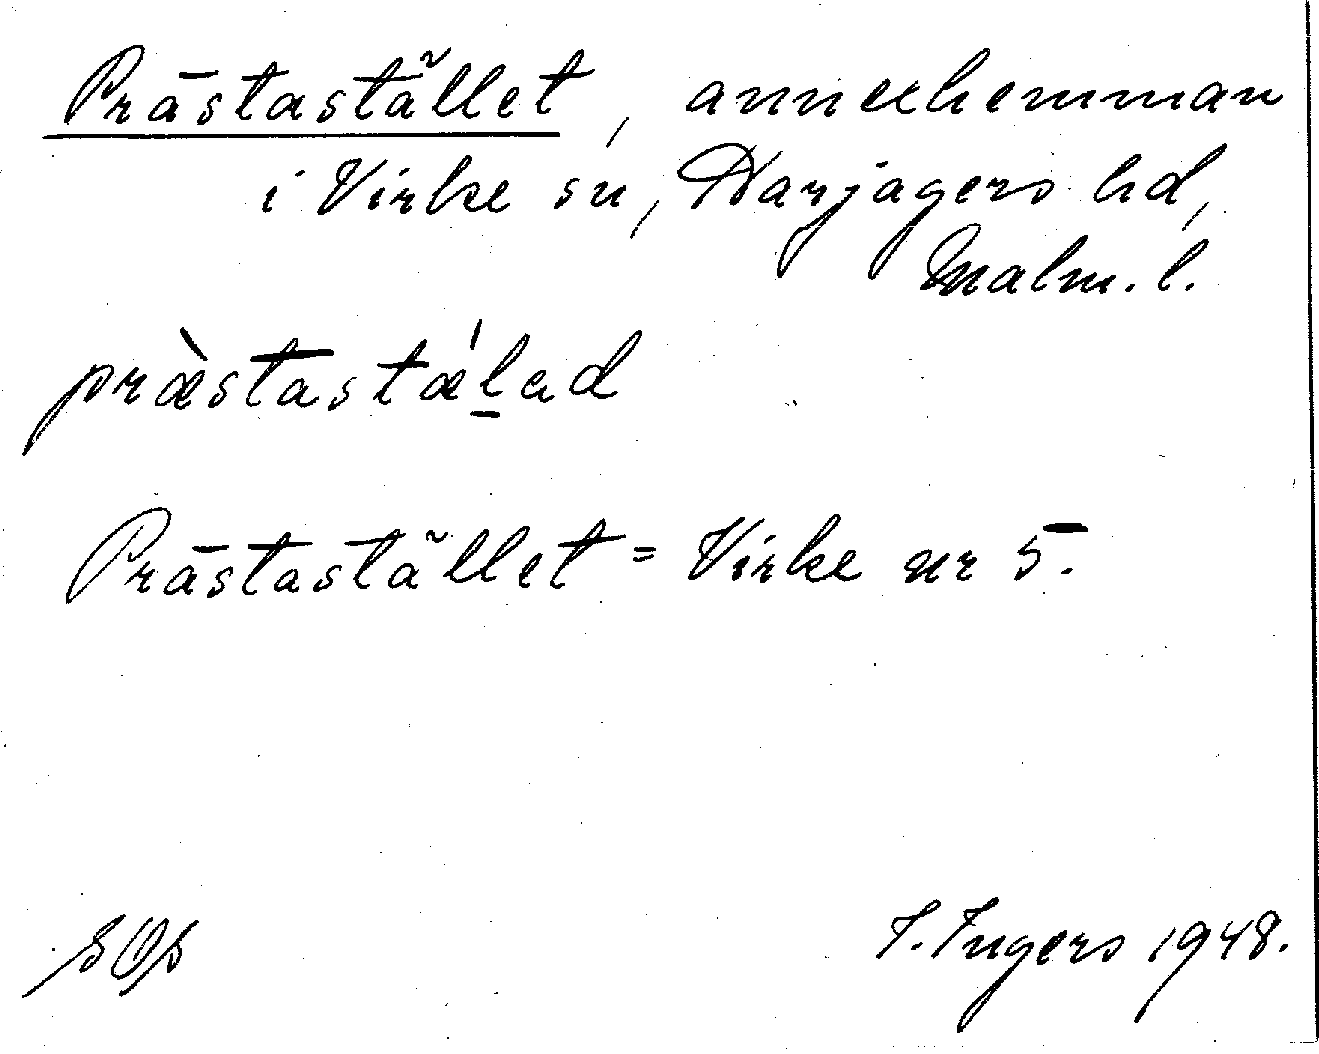 Prästastället, annexhemman
i Virke sn, Harjagers hd,
Malm. l.
præ̀stastǽl̲ad
Prästastället = Virke nr 5.
I. Ingers 1948.